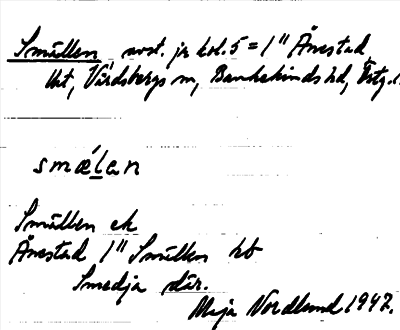 Smällen nost. jr kol. 5 = 1" Änestad
Ukt, Vårdsbergs sn, Bankekinds hd, Östg. l.
smǽlan
Smällen ek
Änestad 1" Smällen hb
Smedja där.
Maja Nordlund 1947.